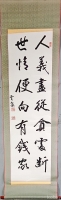 人義盡從貧處斷
世情便向有錢家